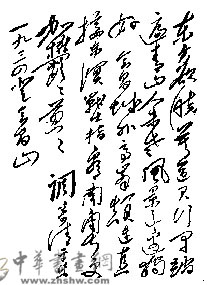 东方欲晓莫道君行早踏
遍青山人未老风景这边独
好会昌城外高峰颠连直
接东溟战士指看南粤更
加郁々葱々调寄清平乐
一九三四登会昌山
中華書畫網
http://www.zhshw.com